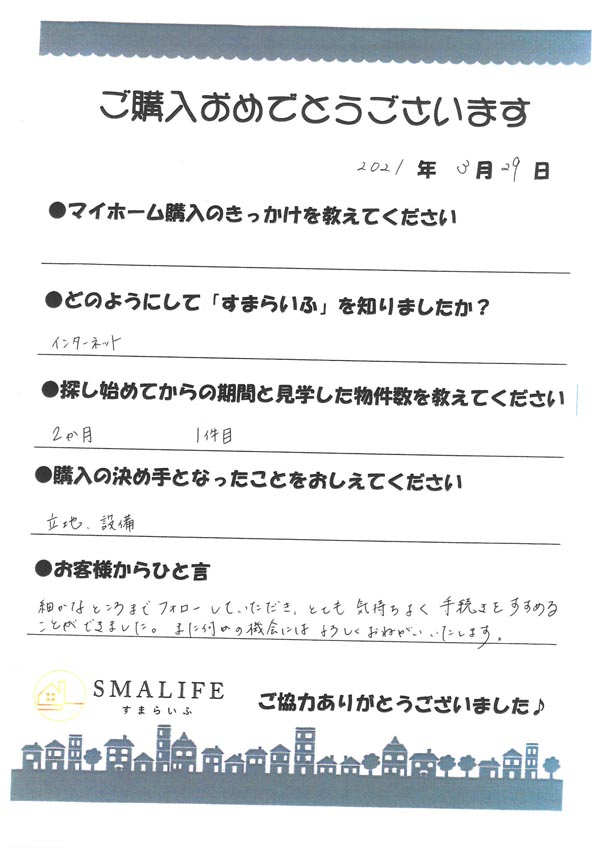 ご購入おめでとうございます
2021 年 3月 29 日
●マイホーム購入のきっかけを教えてください
●どのようにして「すまらいふ」を知りましたか？
インターネット
●探し始めてからの期間と見学した物件数を教えてください
2か月 1件目
●購入の決め手となったことをおしえてください
立地、設備
●お客様からひと言
細かなところまでフォローしていただき、とても気持ちよく手続きをすすめる
ことができました。また何かの機会にはよろしくおねがいいたします。
SMALIFE
すまらいふ
ご協力ありがとうございました♪